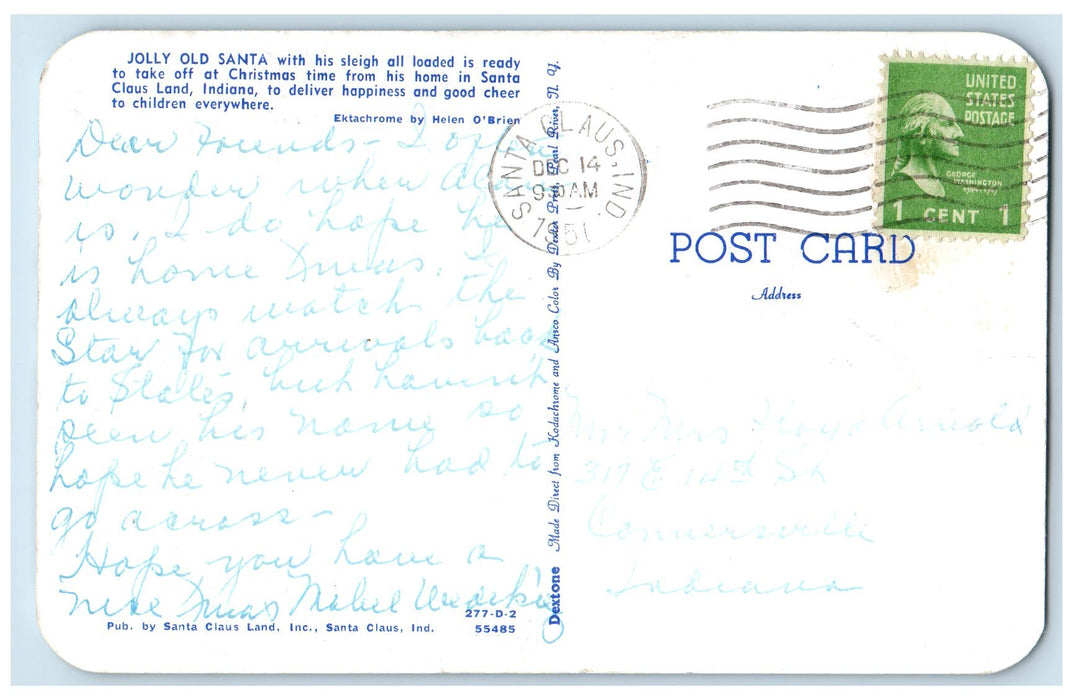 JOLLY OLD SANTA with his sleigh all loaded is ready
to take off at Christmas time from his home in Santa
Claus Land, Indiana, to deliver happiness and good cheer
to children everywhere.
Ektachrome by Helen O'Brien
Dear Friends - I often
wonder where
is, I do hope he
is home Xmas. I
always watch the
Star for arrivals back
to States, but havent
seen his name so
hope he never had to
go across -
Hope you have a
nice Xmas Mabel
277-D-2
Pub. by Santa Claus Land, Inc., Santa Claus, Ind.
55485
Dextone Made Direct from Kodachrome and Ansco Color By Dexter Press, Pearl River, N. Y.
SANTA CLAUS, IND.
DEC 14
AM
1951
UNITED
STATES
POSTAGE
GEORGE
WASHINGTON
1 CENT 1
POST CARD
Address
Mr Mrs Floyd Arnold
317 E 14th St
Connersville
Indiana